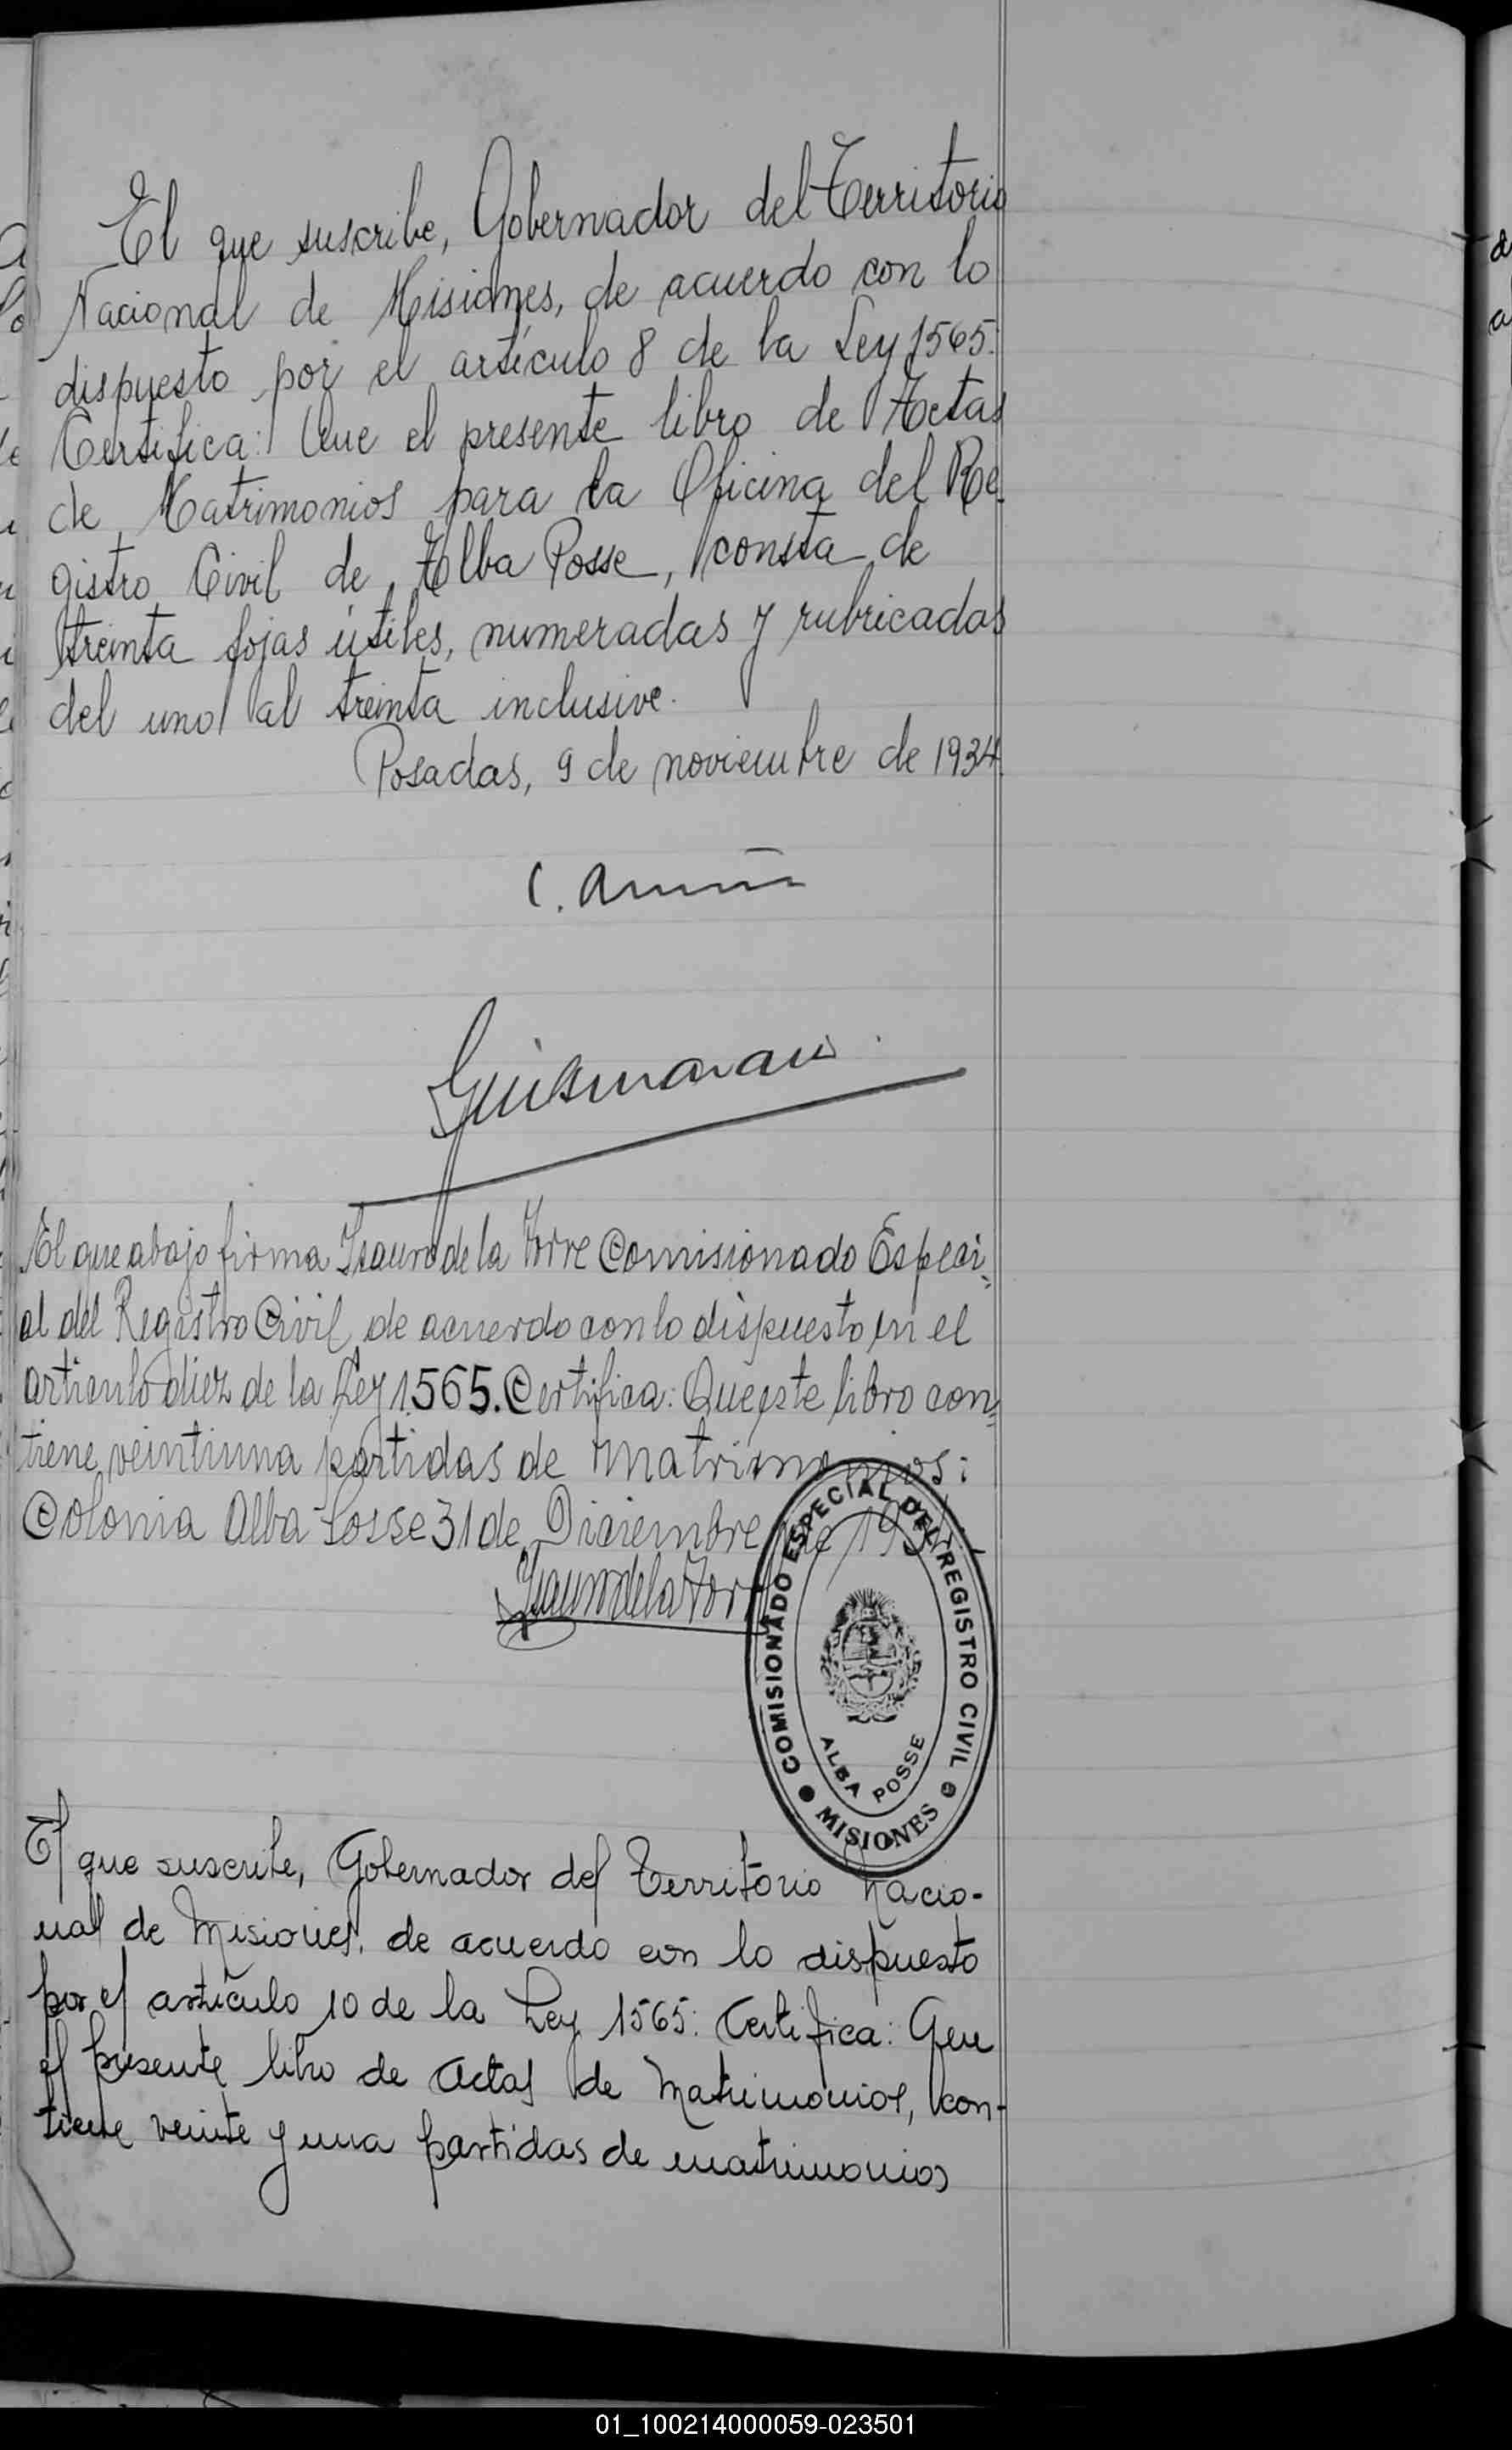 El que suscribe, Gobernador del Territorio
Nacional de Misiones, de acuerdo con lo
dispuesto por el artículo 8 de la Ley 1565:
Certifica: Que el presente libro de Actas
de Matrimonios para la Oficina del Re-
gistro Civil de Alba Posse, consta de
treinta fojas útiles, numeradas y rubricadas
del uno al treinta inclusive.
Posadas, 9 de noviembre de 1934.
C.
El que abajo firma Isauro de la Torre Comisionado Especi-
al del Registro Civil de acuerdo con lo dispuesto en el
articulo diez de la Ley 1565. Certifica: Que este libro con-
tiene veintiuna partidas de matrimonios:
Colonia Alba Posse 31 de Diciembre de
Isauro de la Torre
COMISIONADO ESPECIAL DEL REGISTRO CIVIL
ALBA POSSE
MISIONES
El que suscribe, Gobernador del Territorio Nacio-
nal de Misiones, de acuerdo con lo dispuesto
por el artículo 10 de la Ley 1565: Certifica: Que
el presente libro de Actas de Matrimonios, con-
tiene veinte y una partidas de matrimonios
01_100214000059-023501